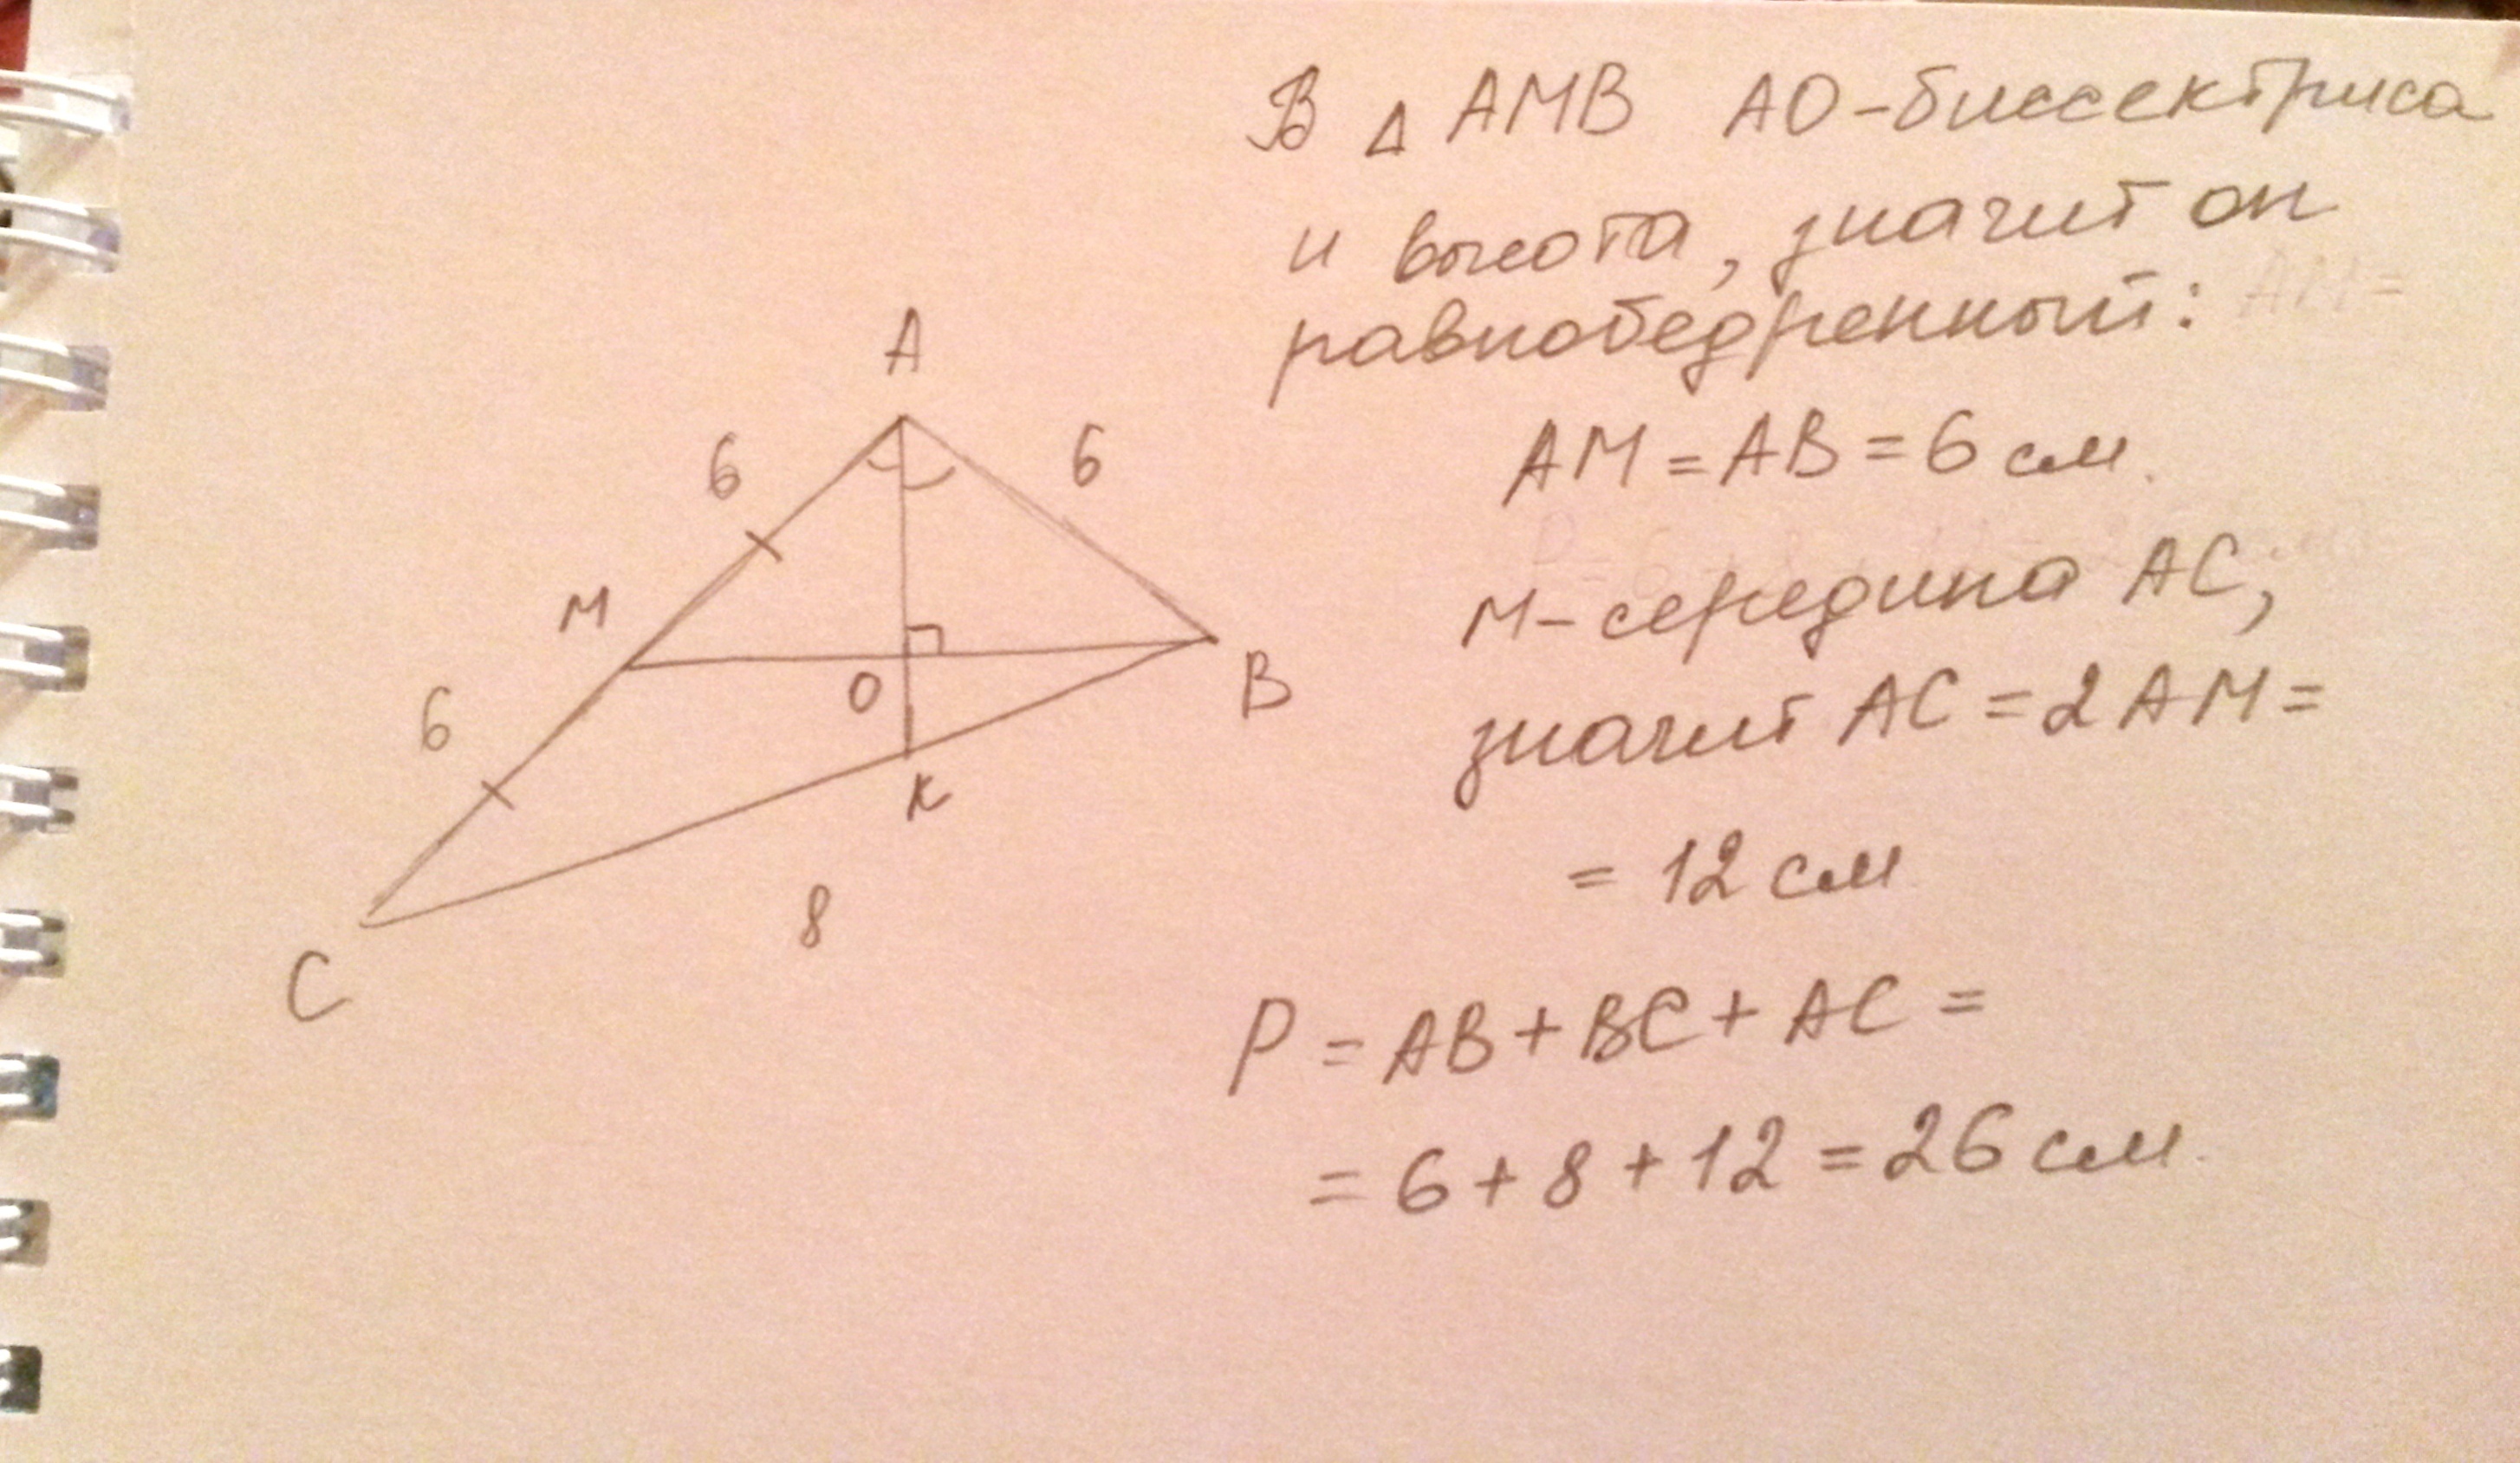 В △ AMB AO-биссектриса
и высота, значит он
равнобедренный:
AM = AB = 6 см.
M-середина AC,
значит AC = 2AM =
= 12 см
P = AB + BC + AC =
= 6 + 8 + 12 = 26 см.
A
6
6
M
O
B
6
K
8
C